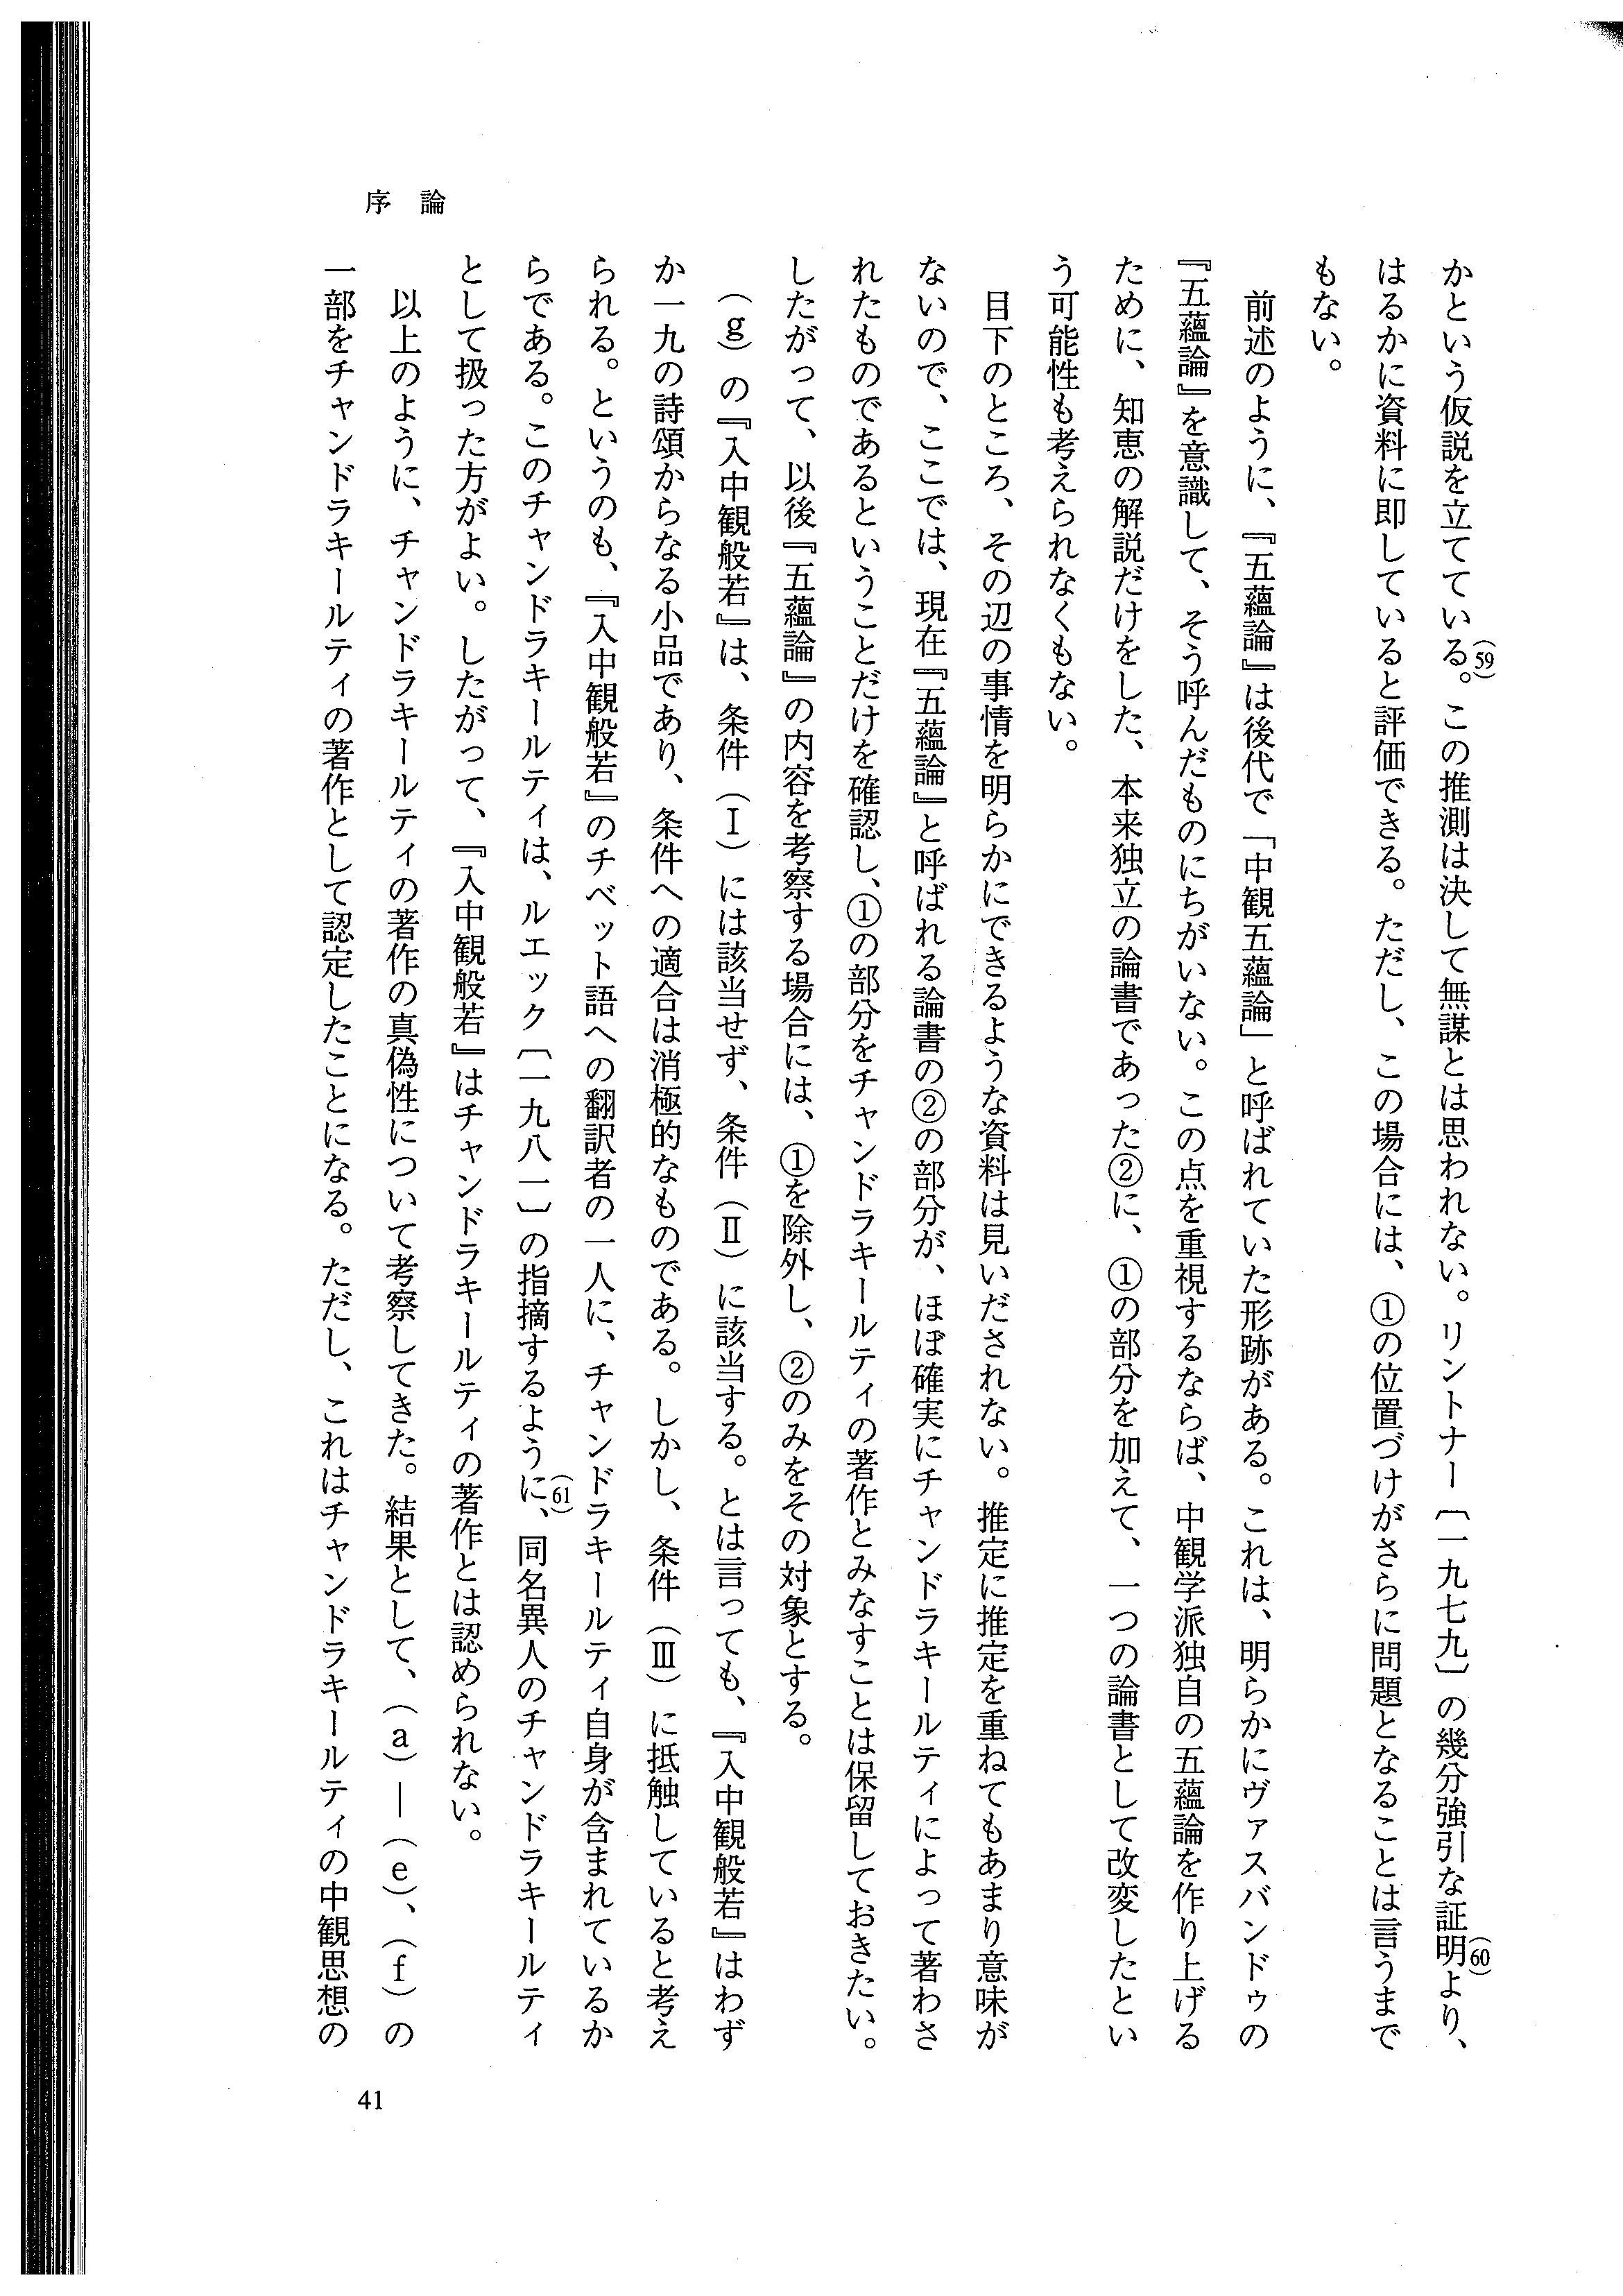 序論
かという仮説を立てている(59)。この推測は決して無謀とは思われない。リントナー〔一九七九〕の幾分強引な証明(60)より、
はるかに資料に即していると評価できる。ただし、この場合には、①の位置づけがさらに問題となることは言うまで
もない。
　前述のように、『五蘊論』は後代で「中観五蘊論」と呼ばれていた形跡がある。これは、明らかにヴァスバンドゥの
『五蘊論』を意識して、そう呼んだものにちがいない。この点を重視するならば、中観学派独自の五蘊論を作り上げる
ために、知恵の解説だけをした、本来独立の論書であった②に、①の部分を加えて、一つの論書として改変したとい
う可能性も考えられなくもない。
　目下のところ、その辺の事情を明らかにできるような資料は見いだされない。推定に推定を重ねてもあまり意味が
ないので、ここでは、現在『五蘊論』と呼ばれる論書の②の部分が、ほぼ確実にチャンドラキールティによって著わさ
れたものであるということだけを確認し、①の部分をチャンドラキールティの著作とみなすことは保留しておきたい。
したがって、以後『五蘊論』の内容を考察する場合には、①を除外し、②のみをその対象とする。
　（ｇ）の『入中観般若』は、条件（Ⅰ）には該当せず、条件（Ⅱ）に該当する。とは言っても、『入中観般若』はわず
か一九の詩頌からなる小品であり、条件への適合は消極的なものである。しかし、条件（Ⅲ）に抵触していると考え
られる。というのも、『入中観般若』のチベット語への翻訳者の一人に、チャンドラキールティ自身が含まれているか
らである。このチャンドラキールティは、ルエック〔一九八一〕の指摘するように(61)、同名異人のチャンドラキールティ
として扱った方がよい。したがって、『入中観般若』はチャンドラキールティの著作とは認められない。
　以上のように、チャンドラキールティの著作の真偽性について考察してきた。結果として、（ａ）―（ｅ）、（ｆ）の
一部をチャンドラキールティの著作として認定したことになる。ただし、これはチャンドラキールティの中観思想の
41